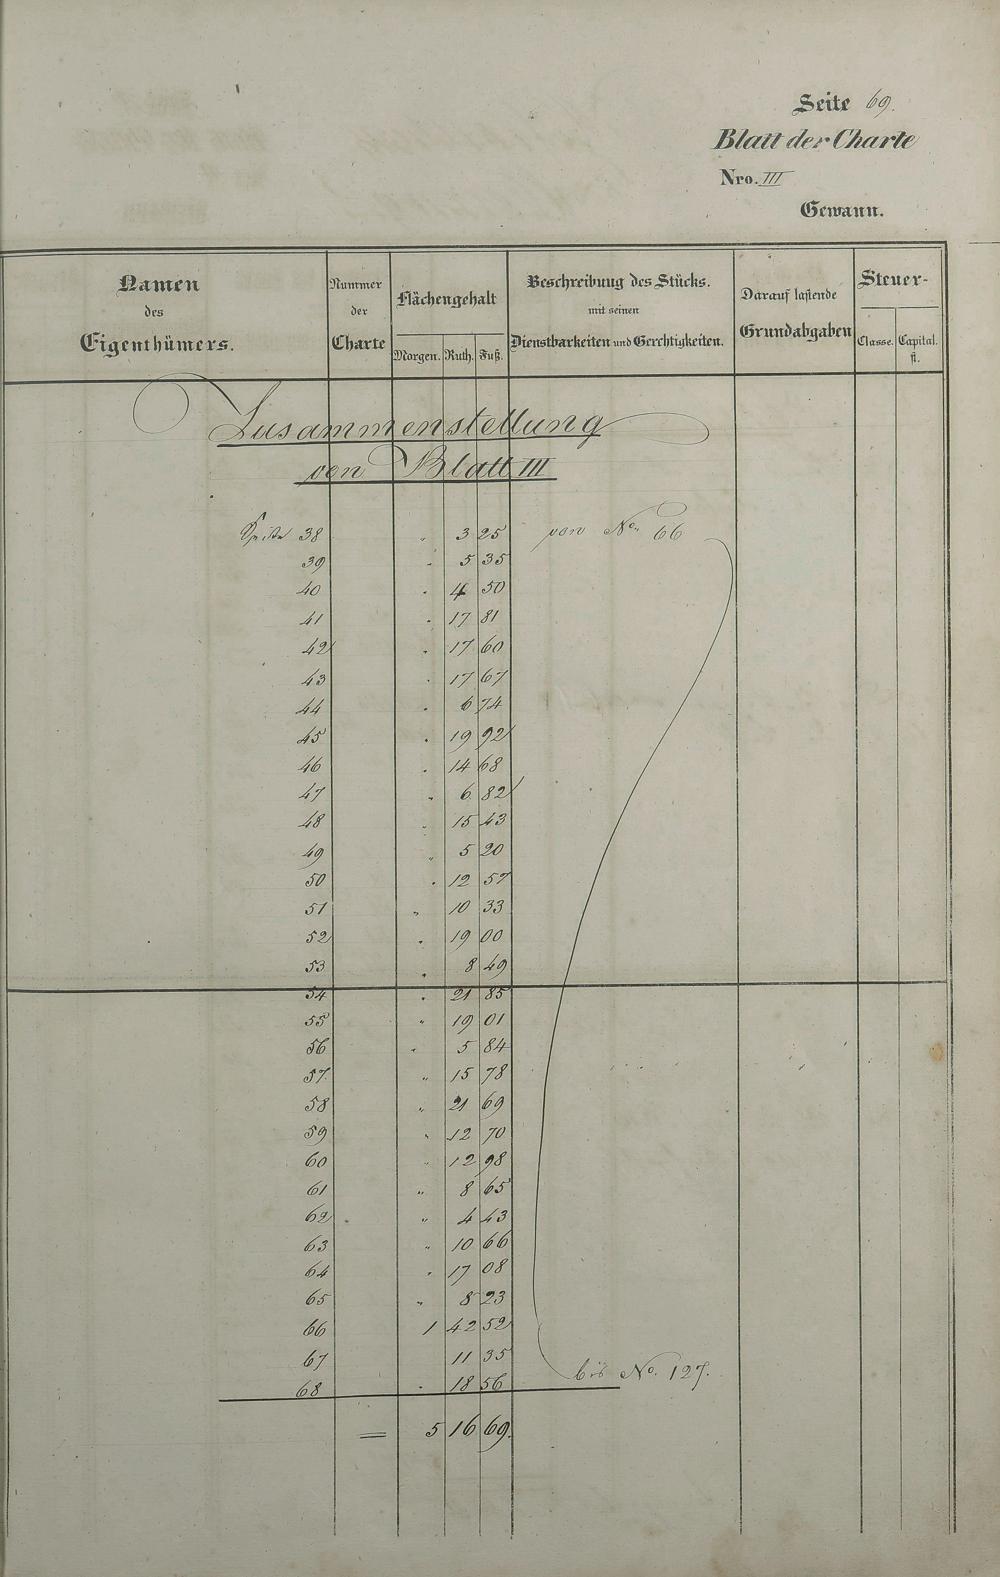 Seite 69.
Blatt der Charte
Nro. III
Gewann.
Namen
des
Eigenthümers.
Nummer
der
Charte
Flächengehalt
Morgen. Ruth. Fuß.
Beschreibung des Stücks.
mit seinen
Dienstbarkeiten und Gerechtigkeiten.
Darauf lastende
Grundabgaben
Steuer-
Classe. Capital.
fl.
Zusammenstellung
von Blatt III
Seite 38 " 3 25 von No. 66
39 " 5 35
40 " 4 50
41 " 17 81
42 " 17 60
43 " 17 67
44 " 6 74
45 " 19 92
46 " 14 68
47 " 6 82
48 " 15 43
49 " 5 20
50 " 12 57
51 " 10 33
52 " 19 00
53 " 8 49
54 " 21 85
55 " 19 01
56 " 5 84
57. " 15 78
58 " 21 69
59 " 12 70
60 " 12 98
61 " 8 65
62 " 4 43
63 " 10 66
64 " 17 08
65 " 8 23
66 1 42 52
67 11 35
68 " 18 56 bis No. 127.
= 5 16 69.